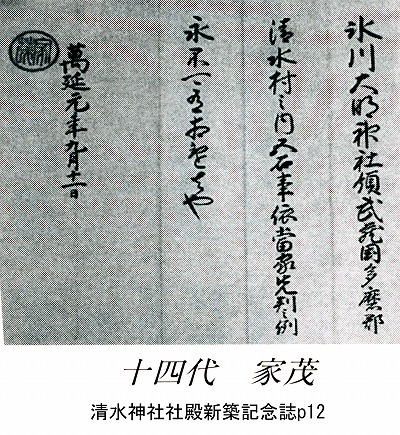 氷川大明神社領武蔵国多磨郡
清水村之内五石事依当家先判之例
永不可有相違者也
萬延元年九月十一日
十四代 家茂
清水神社社殿新築記念誌p12